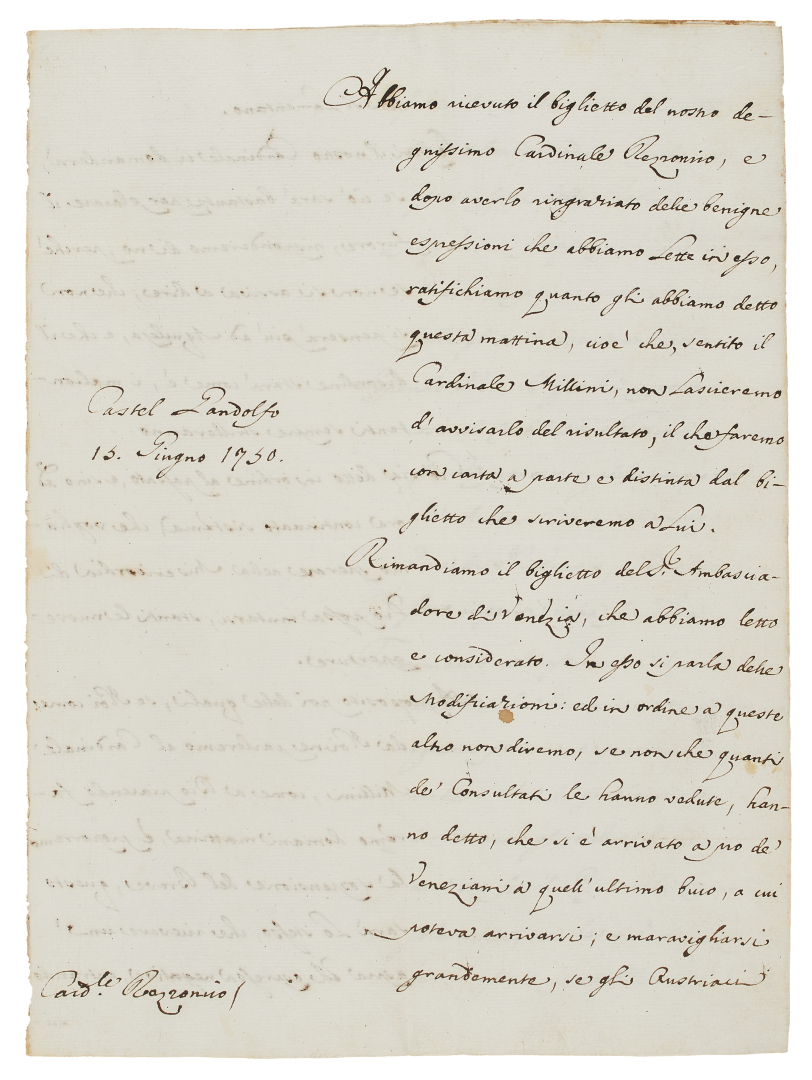 Abbiamo ricevuto il biglietto del nostro de-
gnissimo Cardinale Rezzonico, e
dopo averlo ringraziato delle benigne
espressioni che abbiamo Lette in esso,
ratifichiamo quanto gli abbiamo detto
questa mattina, cioè che, sentito il
Cardinale Millini, non Lascieremo
d'avvisarlo del risultato, il che faremo
con carta a parte e distinta dal bi-
glietto che scriveremo a Lui.
Castel Gandolfo
15. Giugno 1750.
Rimandiamo il biglietto del S.r Ambascia-
dore di Venezia, che abbiamo letto
e considerato. In esso si parla delle
Modificazioni: ed in ordine a queste
altro non diremo, se non che quanti
de' Consultati le hanno vedute, han-
no detto, che si è arrivato a pro de'
Veneziani a quell'ultimo buco, a cui
poteva arrivarsi; e maravigliarsi
grandemente, se gli Austriaci
Card.le Rezzonico